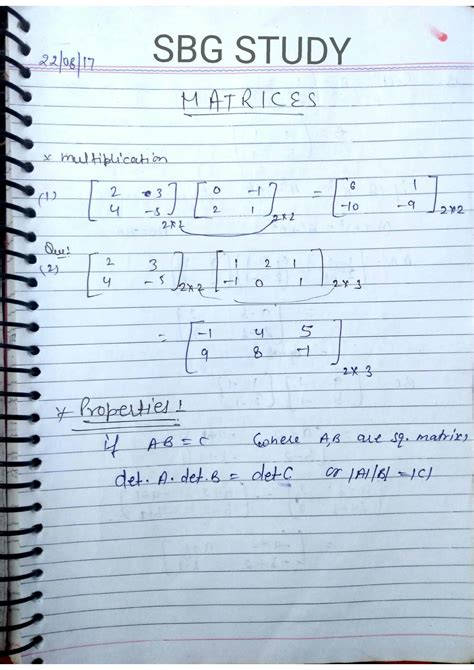 SBG STUDY
22/08/17
MATRICES
x multiplication
(1) [2 3; 4 -5] 2×2 [0 -1; 2 1] 2×2 = [6 1; -10 -9] 2×2
Que:
(2) [2 3; 4 -5] 2×2 [1 2 1; -1 0 1] 2×3
= [-1 4 5; 9 8 -1] 2×3
x Properties:
if AB = C where A,B are sq. matrix,
det. A. det. B = det C or |A||B| = |C|